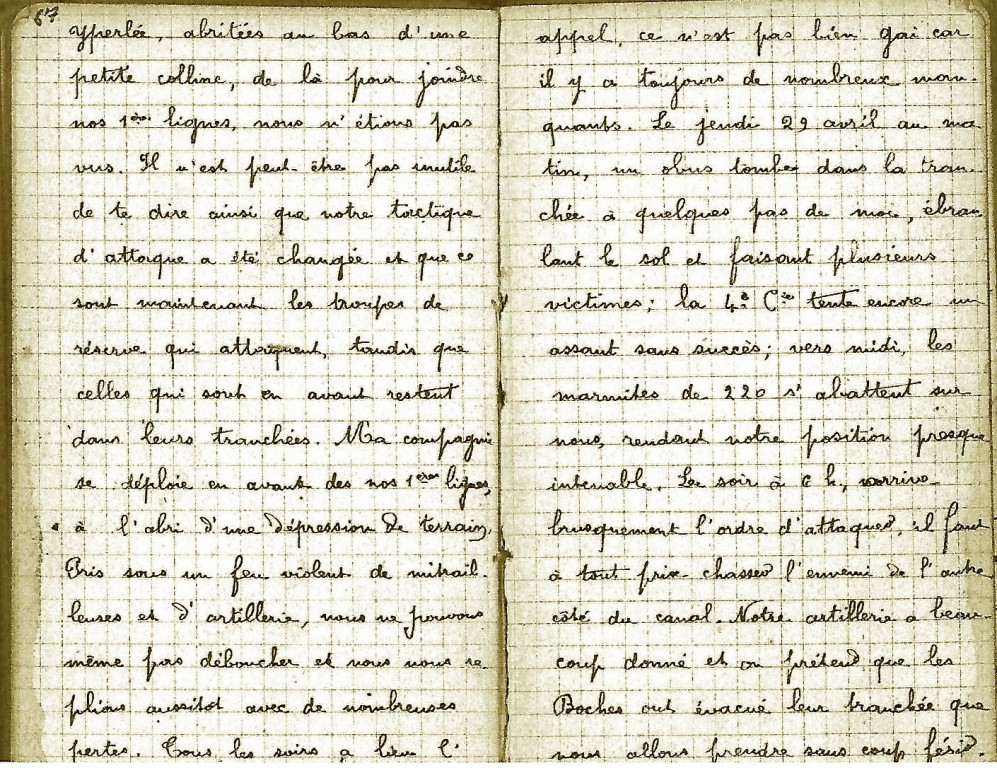 67
Yperlée, abritées au bas d'une
petite colline, de là pour joindre
nos 1ères lignes, nous n'étions pas
vus. Il n'est peut-être pas inutile
de te dire ainsi que notre tactique
d'attaque a été changée et que ce
sont maintenant les troupes de
réserve qui attaquent, tandis que
celles qui sont en avant restent
dans leurs tranchées. Ma compagnie
se déploie en avant des nos 1ères lignes,
à l'abri d'une dépression de terrain,
Pris sous un feu violent de mitrail-
leuses et d'artillerie, nous ne pouvons
même pas déboucher et nous nous re
plions aussitôt avec de nombreuses
pertes. Tous les soirs a lieu l'
appel, ce n'est pas bien gai car
il y a toujours de nombreux man-
quants. Le jeudi 29 avril au ma
tin, un obus tombe dans la tran-
chée à quelques pas de moi, ébran
lant le sol et faisant plusieurs
victimes; la 4e Cie tente encore un
assaut sans succès; vers midi, les
marmites de 220 s'abattent sur
nous, rendant notre position presque
intenable. Le soir à 6 h., arrive
brusquement l'ordre d'attaquer, il faut
à tout prix chasser l'ennemi de l'autre
côté du canal. Notre artillerie a beau-
coup donné et on prétend que les
Boches ont évacué leur tranchée que
nous allons prendre sans coup férir.